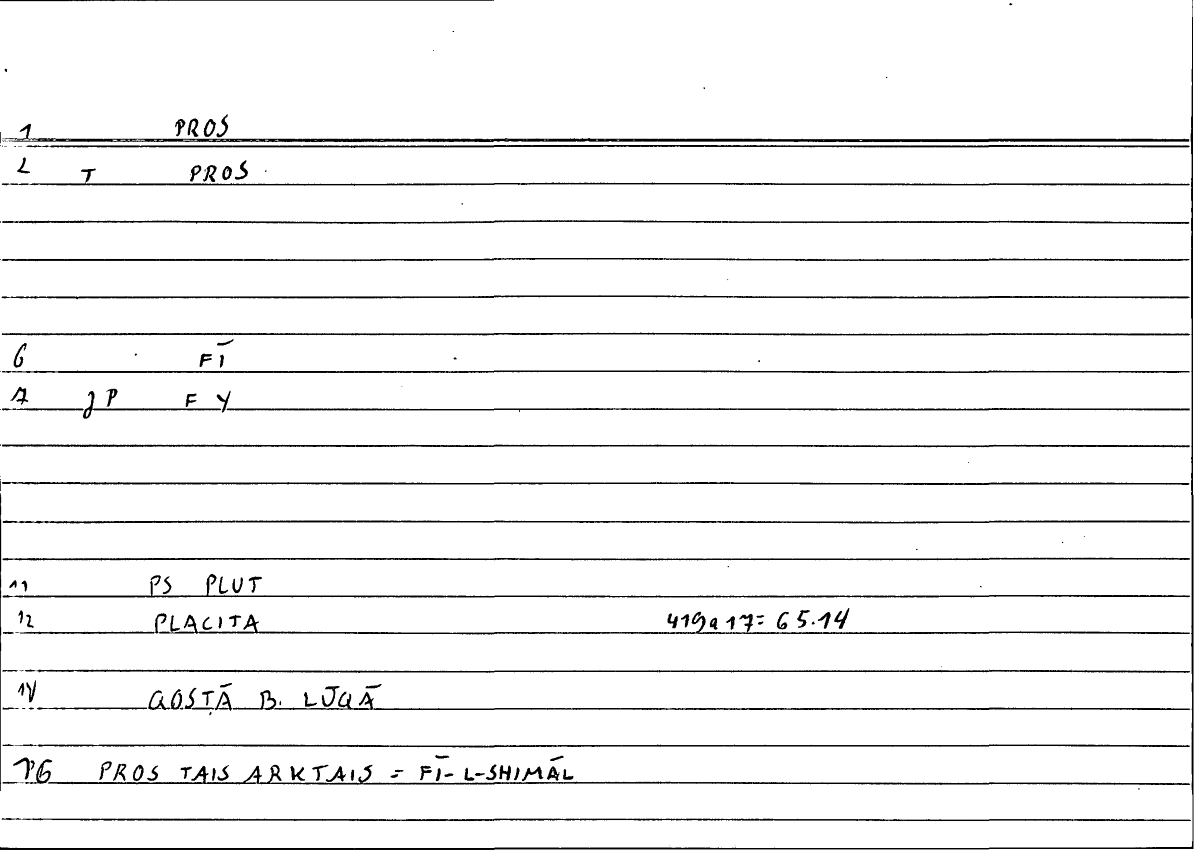 1 PROS
2 T PROS
6 FĪ
7 JP F Y
11 PS PLUT
12 PLACITA 419a17= 65.14
14 QOSṬĀ B. LŪQĀ
16 PROS TAIS ARKTAIS = FĪ-L-SHIMĀL